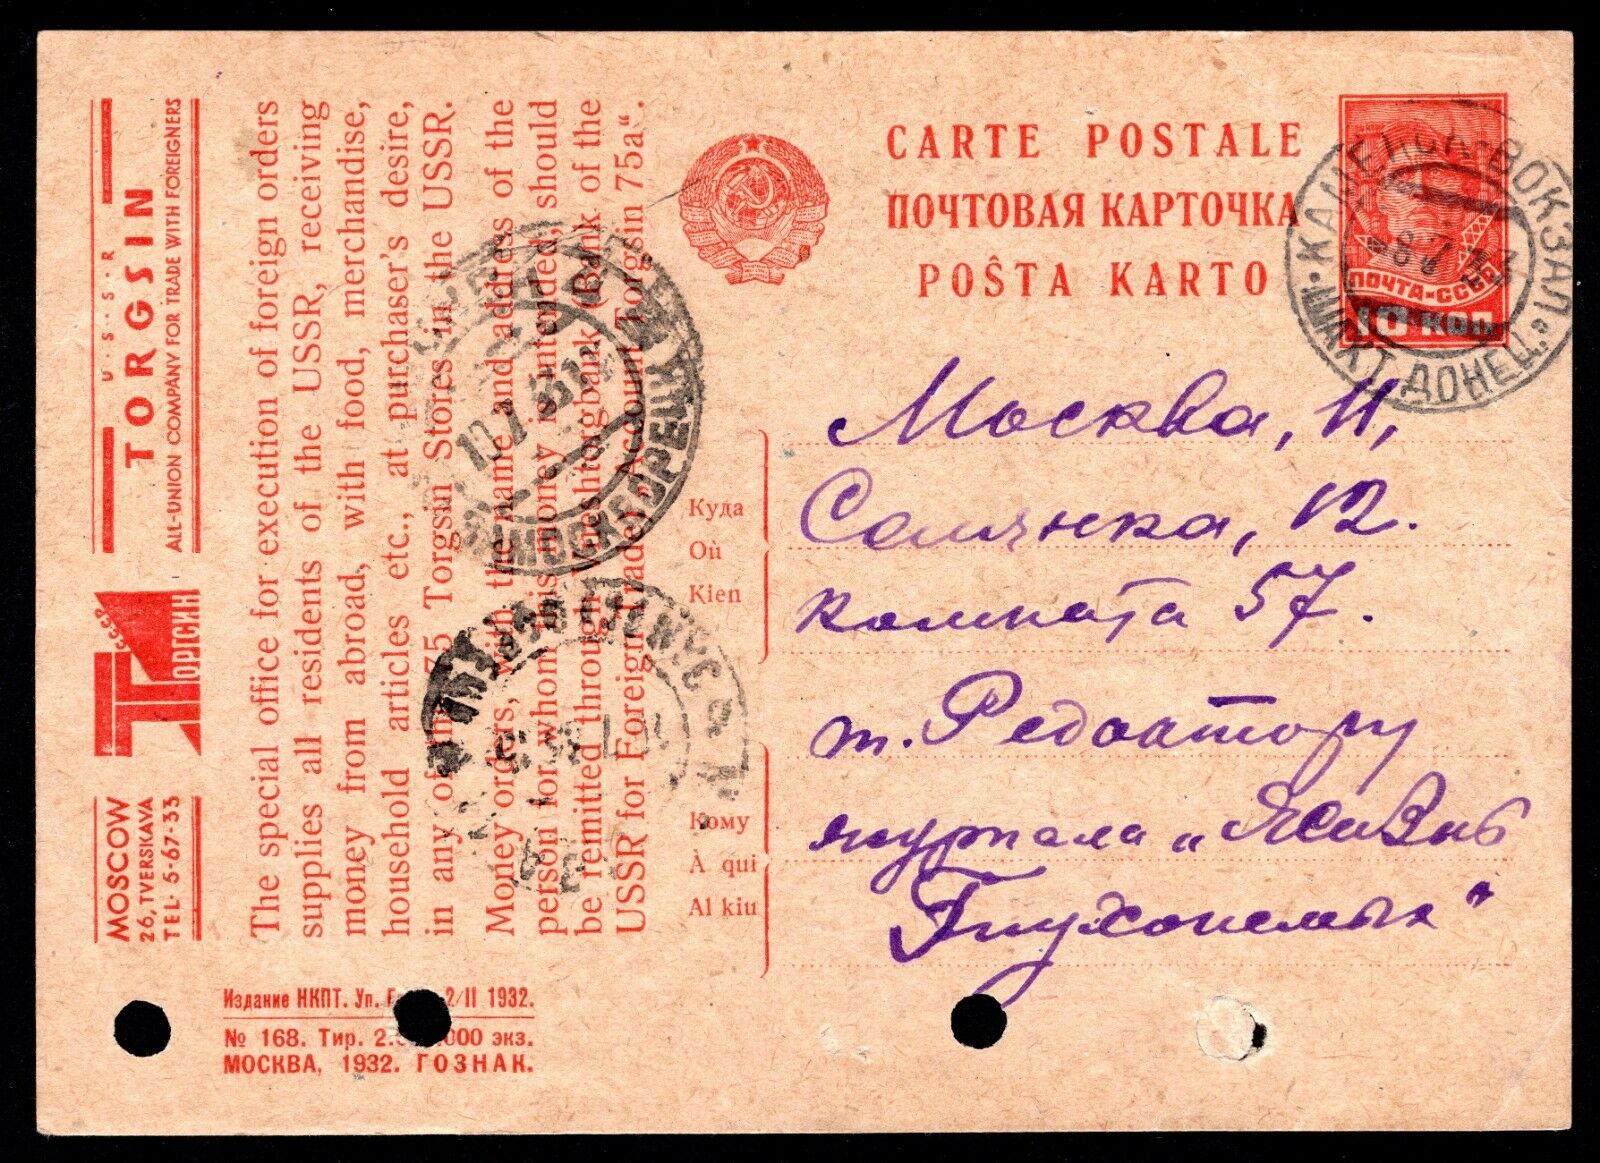 U·S·S·R
TORGSIN
ALL-UNION COMPANY FOR TRADE WITH FOREIGNERS
СССР
ТОРГСИН
MOSCOW
26, TVERSKAYA
TEL· 5-67-33
The special office for execution of foreign orders
supplies all residents of the USSR, receiving
money from abroad, with food, merchandise,
household articles etc., at purchaser's desire,
in any of 75 Torgsin Stores in the USSR.
Money orders, with the name and address of the
person for whom this money is intended, should
be remitted through Vneshtorgbank (Bank of the
USSR for Foreign trade) Account „Torgsin 75a“.
Издание НКПТ. Уп. 2/II 1932.
№ 168. Тир. 000 экз.
МОСКВА, 1932. ГОЗНАК.
CARTE POSTALE
ПОЧТОВАЯ КАРТОЧКА
POŜTA KARTO
ПОЧТА-СССР
10 КОП
КАМЕНСК-ВОКЗАЛ
ШАХТ. ДОНЕЦ.
8 7 33
10.7.33
Куда
Où
Kien
Кому
À qui
Al kiu
Москва, 11,
Солянка, 12.
комната 57.
т. Редоктору
журнала „Жизнь
Глухонемых"